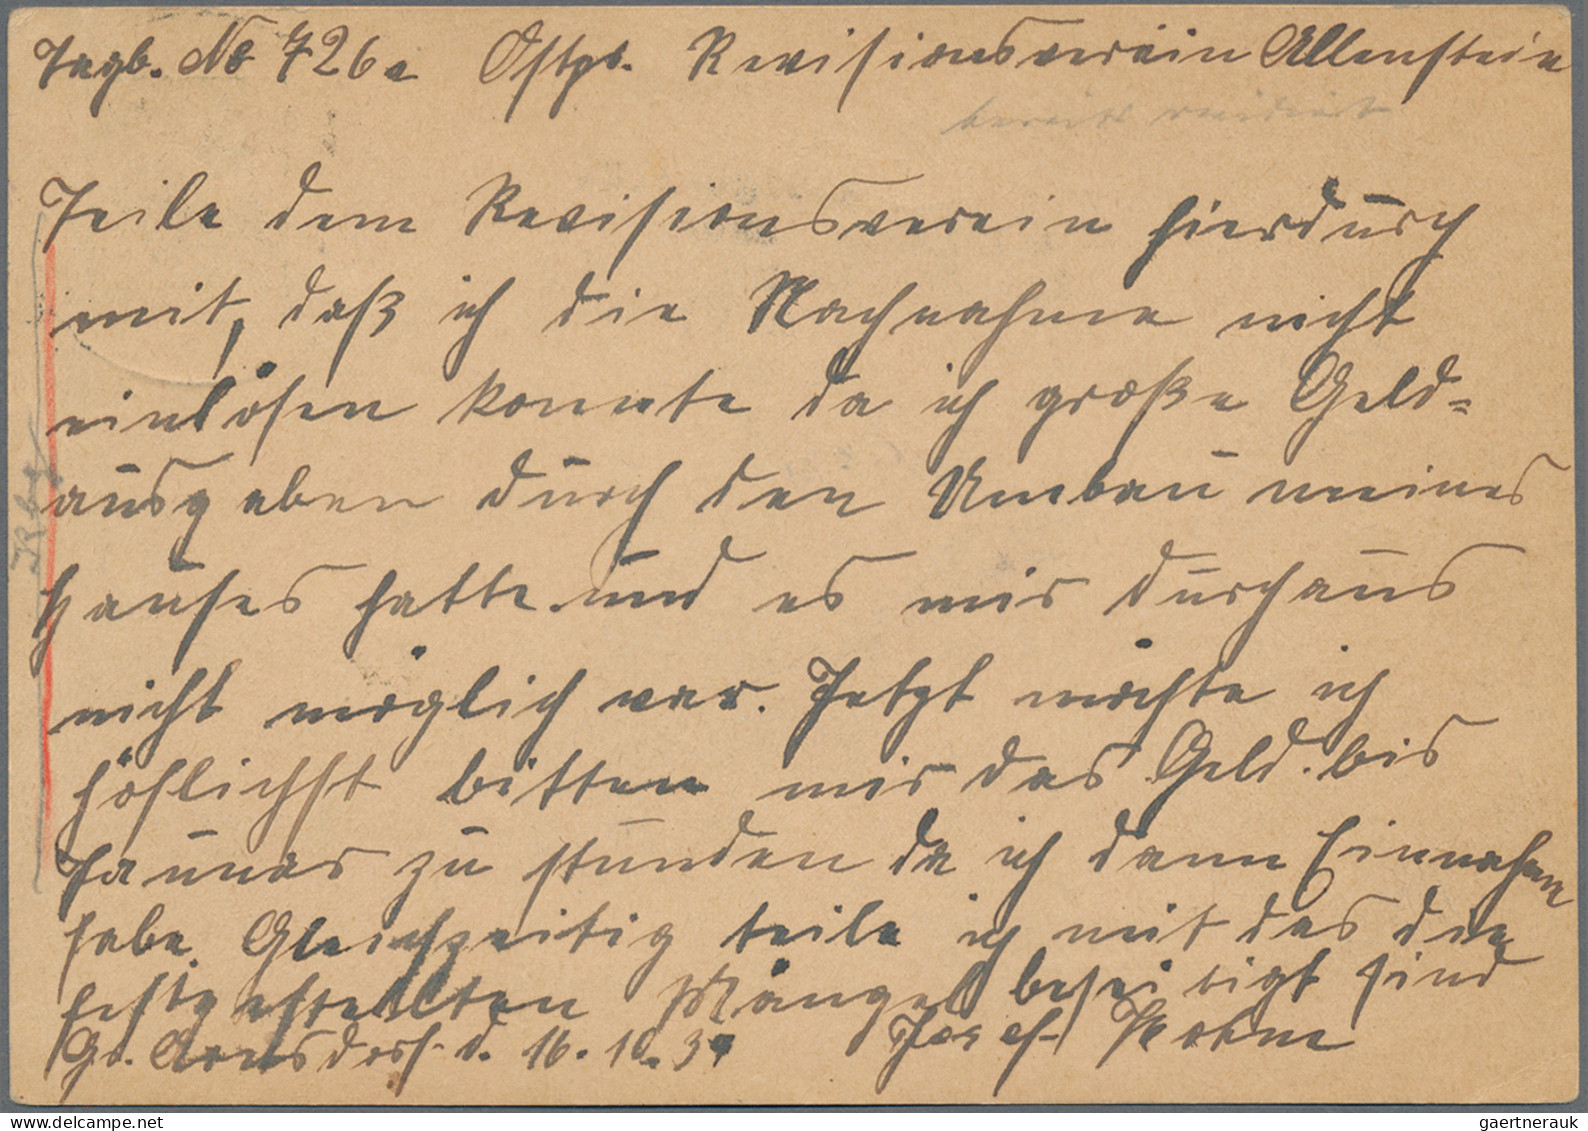 Tagb. No 726a Ostpr. Revisionsverein Allenstein
bereits revidiert
Teile dem Revisionsverein hierdurch
mit, daß ich die Nachnahme nicht
einlösen konnte da ich große Geld=
ausgaben durch den Umbau meines
Hauses hatte und es mir durchaus
nicht möglich war. Jetzt möchte ich
höflichst bitten mir das Geld bis
Januar zu stunden da ich dann Einnahmen
habe. Gleichzeitig teile ich mit das die
festgestellten Mängel beseitigt sind
Gr. Arnsdorf d. 16.10.39 Josef
gaertnerauk